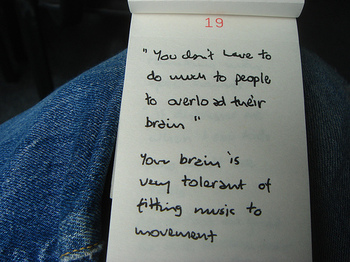 19
"You don't have to
do much to people
to overload their
brain"
Your brain is
very tolerant of
fitting music to
movement